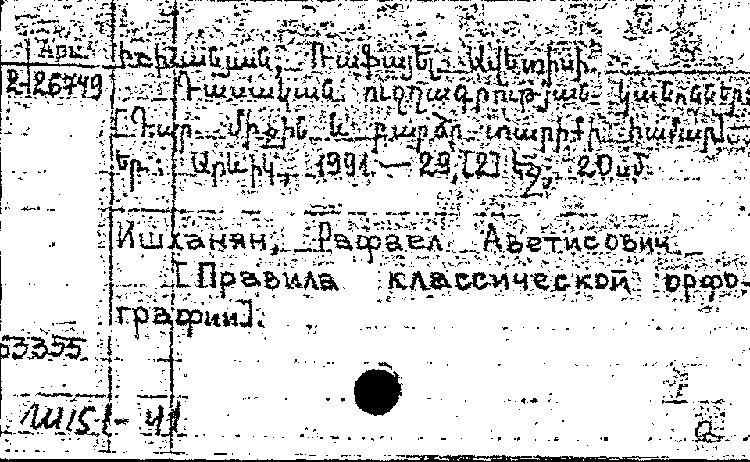 Арм.
Իշխանյան, Ռաֆայել Ավետիսի.
2-26749
Դասական ուղղագրության կանոնները
[Դպր. միջին և բարձր տարիքի համար].
Եր.: Արևիկ, 1991.— 29,[2] էջ, 20սմ.
Ишханян, Рафаел Аветисович
[Правила классической орфо-
графии].
53355